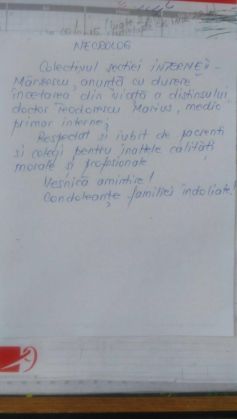 NECROLOG
Colectivul secției INTERNE I -
Mârzescu, anunță cu durere
încetarea din viață a distinsului
doctor Teodorescu Marius, medic
primar interne;
Respectat și iubit de pacienti
si colegi pentru inaltele calități
morale si profesionale
Vesnică amintire!
Condoleanțe familiei indoliate!